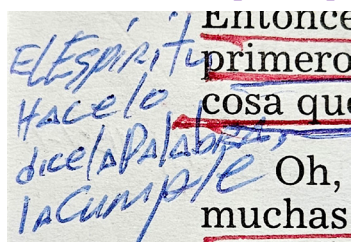 El Espíritu
Hace lo
dice la Palabra,
la Cumple
Entonce
primero
cosa que
Oh,
muchas